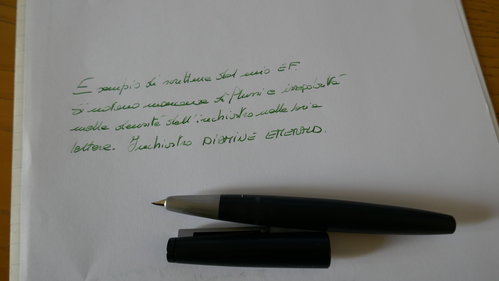 Esempio di scrittura del mio EF
si notano mancanze di flussi e irregolarità
nella densità dell'inchiostro nelle
lettere. Inchiostro DIAMINE EMERALD.